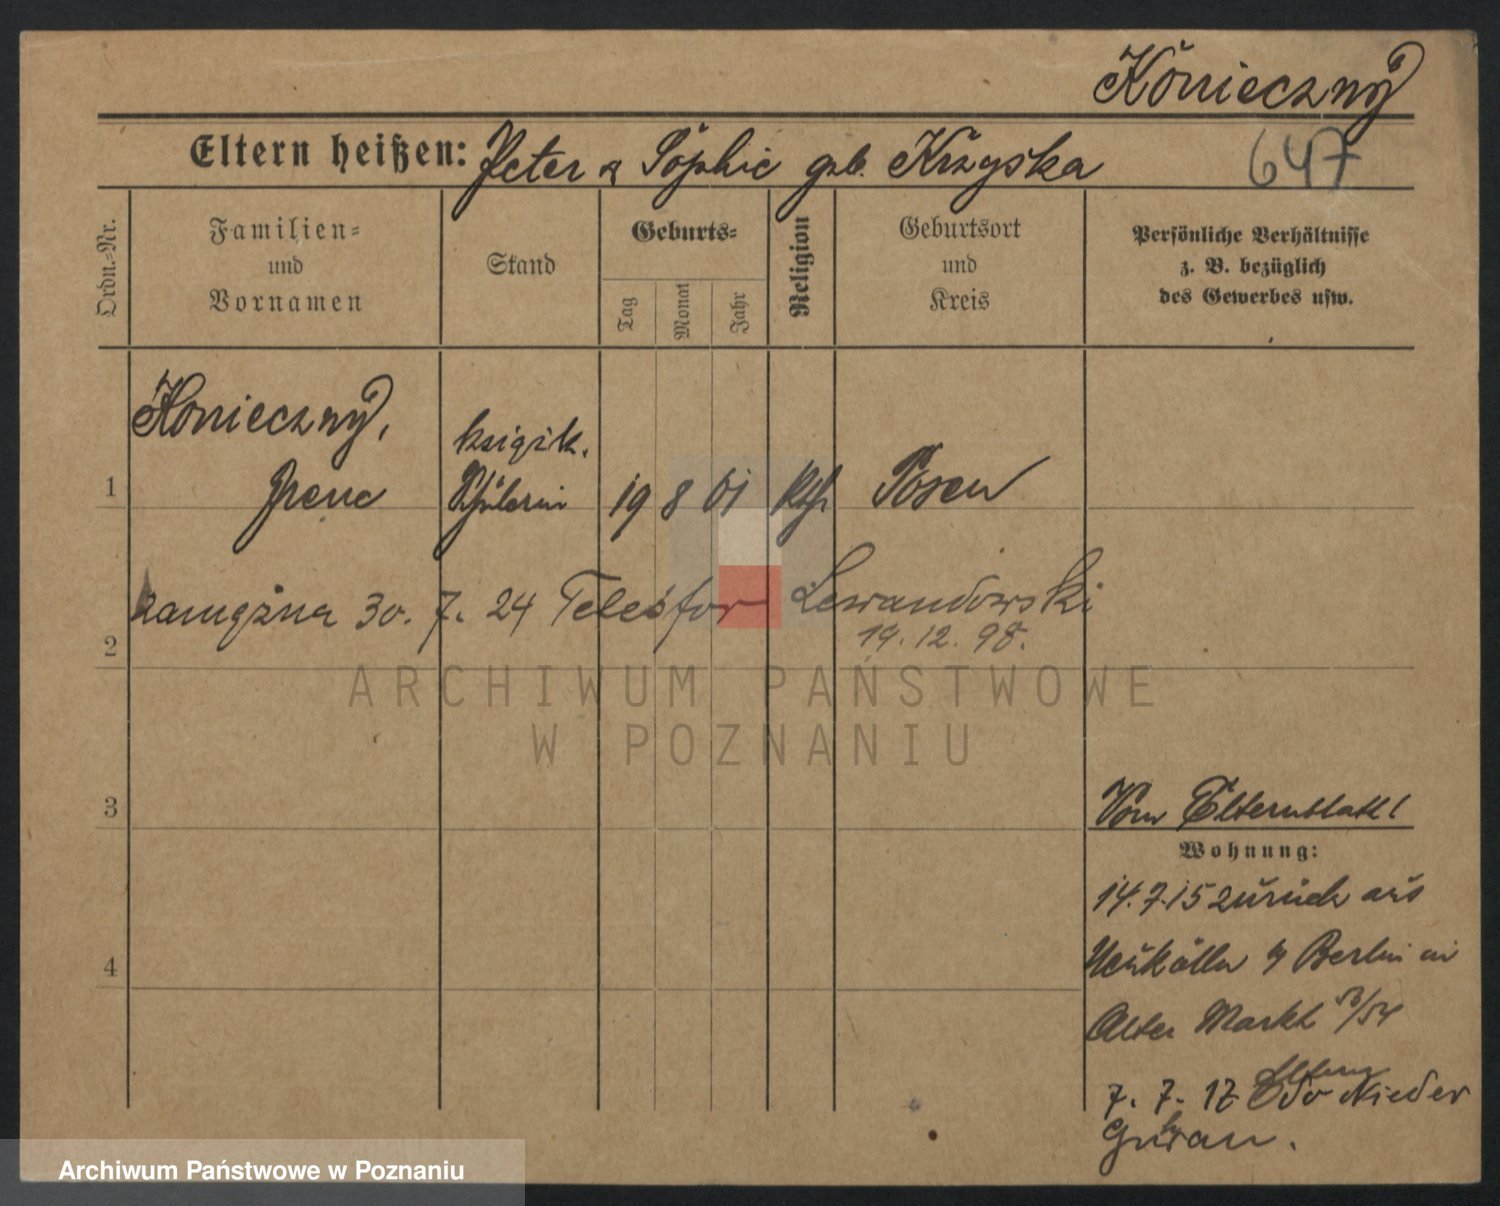 Konieczny
Eltern heißen: Peter & Sophie geb. Krzyska
647
Ordn.=Nr.
Familien=
und
Vornamen
Stand
Geburts=
Tag
Monat
Jahr
Religion
Geburtsort
und
Kreis
Persönliche Verhältnisse
z. B. bezüglich
des Gewerbes usw.
Konieczny,
1 Irene Schülerin 19 8 01 kth Posen
zamężna 30. 7. 24 Telesfor Lewandowski
19. 12. 98.
2
ARCHIWUM PAŃSTWOWE
W POZNANIU
3
Vom Elternblatt!
Wohnung:
14.7.15 zurück aus
Neukölln b/ Berlin
4
Alter Markt 53/54
7. 7. 17 Eltern Nieder
Guhrau.
Archiwum Państwowe w Poznaniu